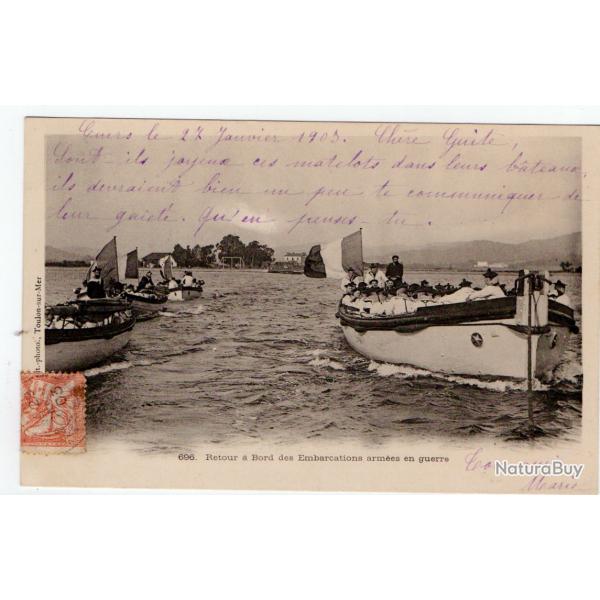 Cuers le 27 Janvier 1903. Chère Guite,
Sont-ils joyeux ces matelots dans leurs bateaux,
ils devraient bien un peu te communiquer de
leur gaieté. Qu'en penses-tu.
phot., Toulon-sur-Mer
696. Retour à Bord des Embarcations armées en guerre
Marie
NaturaBuy